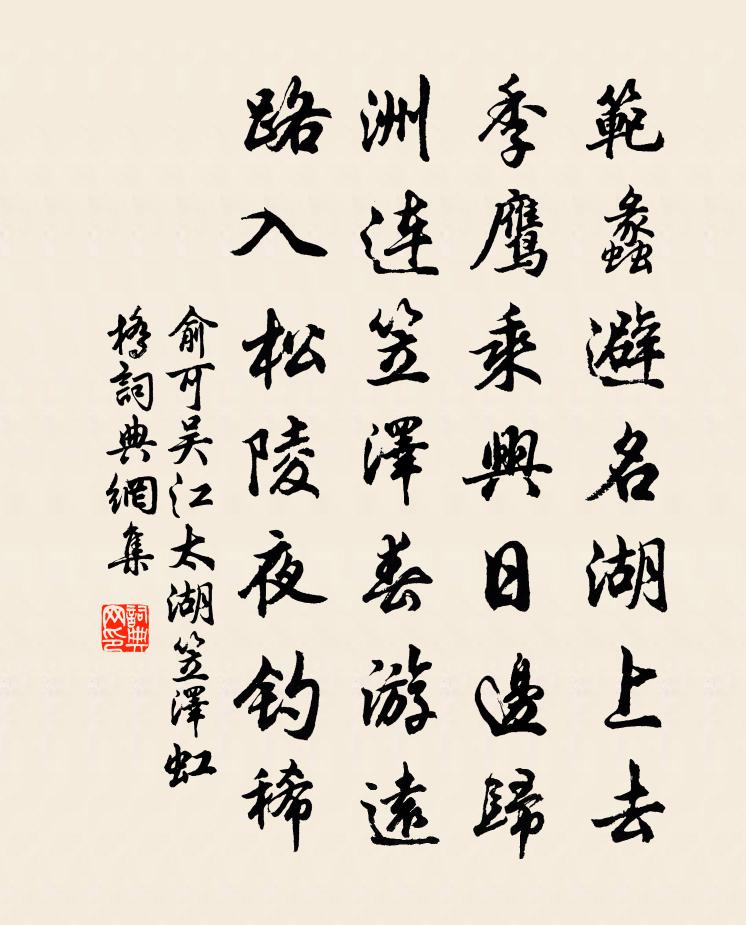 範蠡避名湖上去
季鹰乘興日邊歸
洲連笠澤春游遠
路入松陵夜钓稀
俞可吴江太湖笠澤虹
橋詞典網集
詞典
网印